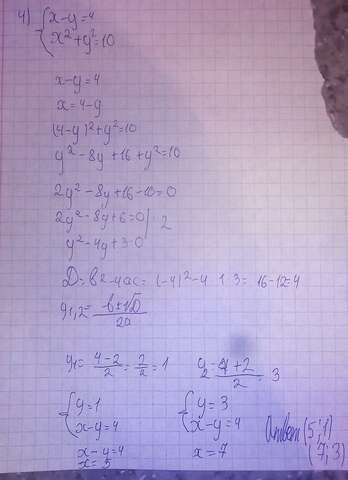 4) { x-y=4
x²+y²=10
x-y=4
x=4-y
(4-y)²+y²=10
y²-8y+16+y²=10
2y²-8y+16-10=0
2y²-8y+6=0 | :2
y²-4y+3=0
D=b²-4ac=(-4)²-4·1·3=16-12=4
y1,2=(-b±√D)/2a
y1=(4-2)/2=2/2=1 y2=(4+2)/2=3
{ y=1 { y=3
x-y=4 x-y=4
x-y=4 x=7
x=5
Ответ (5;1)
(7;3)